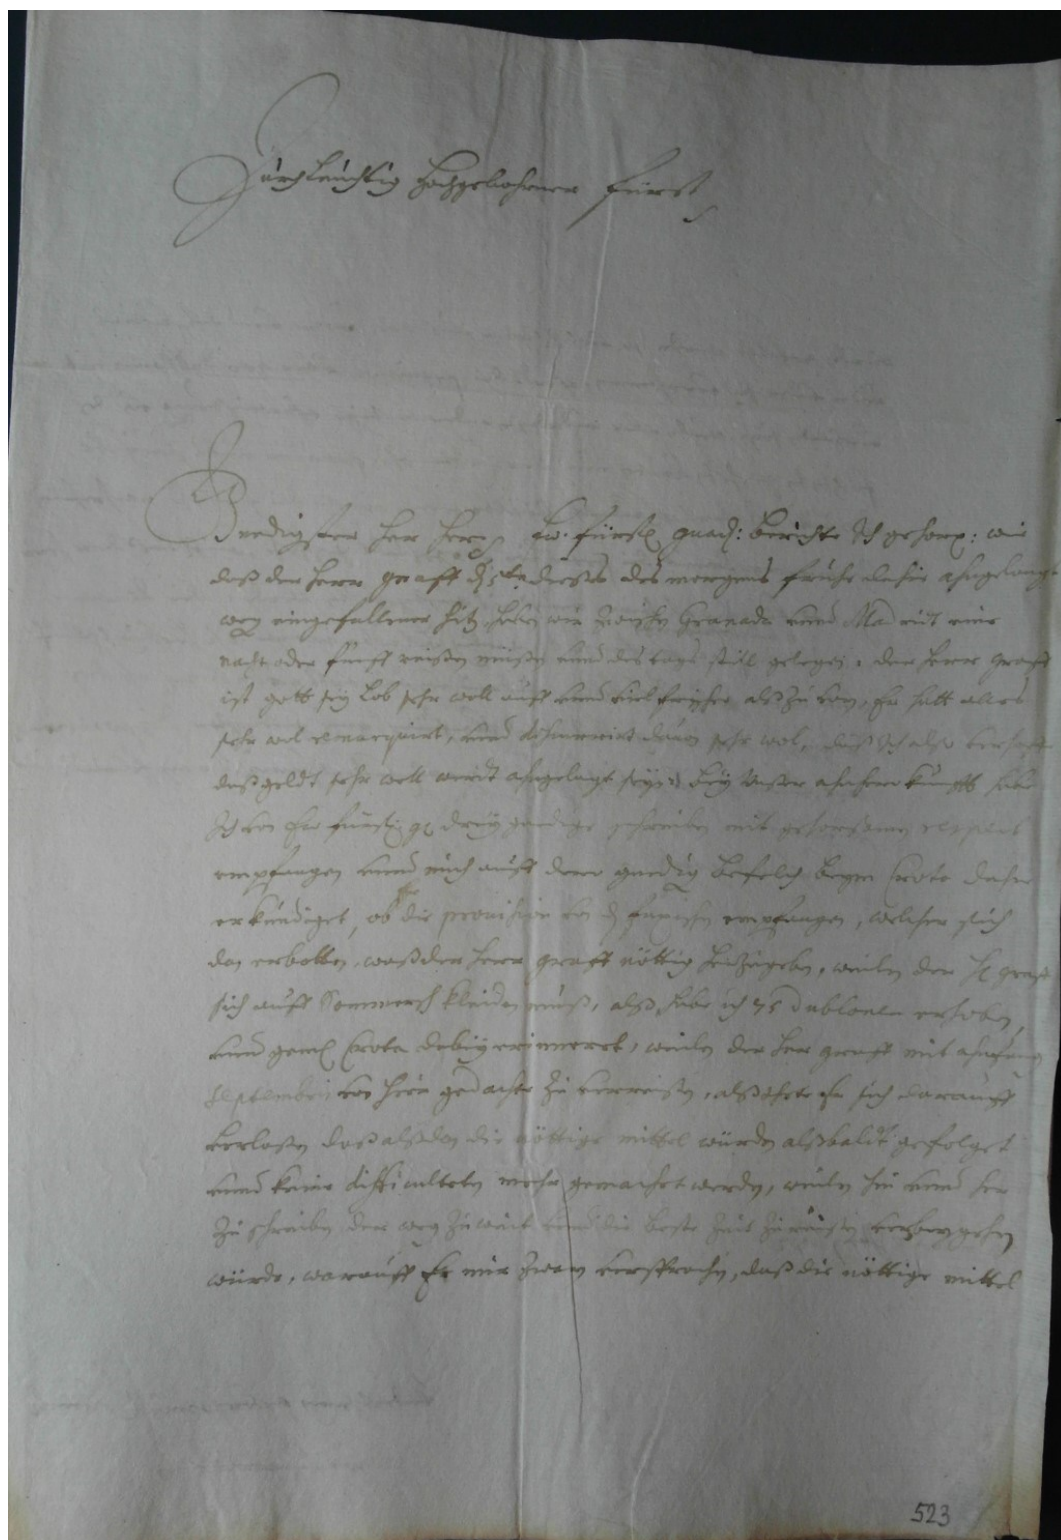 Durchleuchtig Hochgebohrner Fürst
Gnedigster Her Herr Ew. fürstl gnad: berichte Ich gehors: wie
daß der Herr graff d 5ten dießes des morgens frühe alhie ahngelangt
weg eingefallener Hitz, haben wir zwischen Granada unnd Madridt eine
nacht oder fünff reißen müßen unnd des tags still gelegen, der Herr graff
ist gott sey lob sehr woll auff unnd viel als zu vor, Er hatt alles
sehr wol remarquirt, unnd davon sehr wol, daß Ich also verhoffe
daß geldt sehr woll werdt ahngelegt seyn bey Unßer ahnherokunfft habe
Ich von Ew fürstl gl drey gnedige schreiben mit gehorsamen respect
empfangen unnd mich auff dero gnedig befelch beym Crota daher
erkündiget, ob Er die provision von empfangen, welcher sich
dan erbotten, waß der Herr graff nöttig herzugeben, weilen der H graff
sich auff Sommerisch kleiden muß, alß habe ich 75 dublonen erhoben,
unnd geml Crota dabey erinnert, weilen der Herr graff mit ahnfang
Septembris von hier gedachte zu verreißen, alß Er sich darauff
verlaßen daß alßdan die nöttige mittel würden alßbaldt gefolget
unnd keine difficulteten mehr gemachet werden, weilen hin unnd her
zu schreiben der weg zu weit unnd die beste zeit zu reißen vorbey gehen
würde, warauff Er mir zwar versprochen, daß die nöttige mittel
523